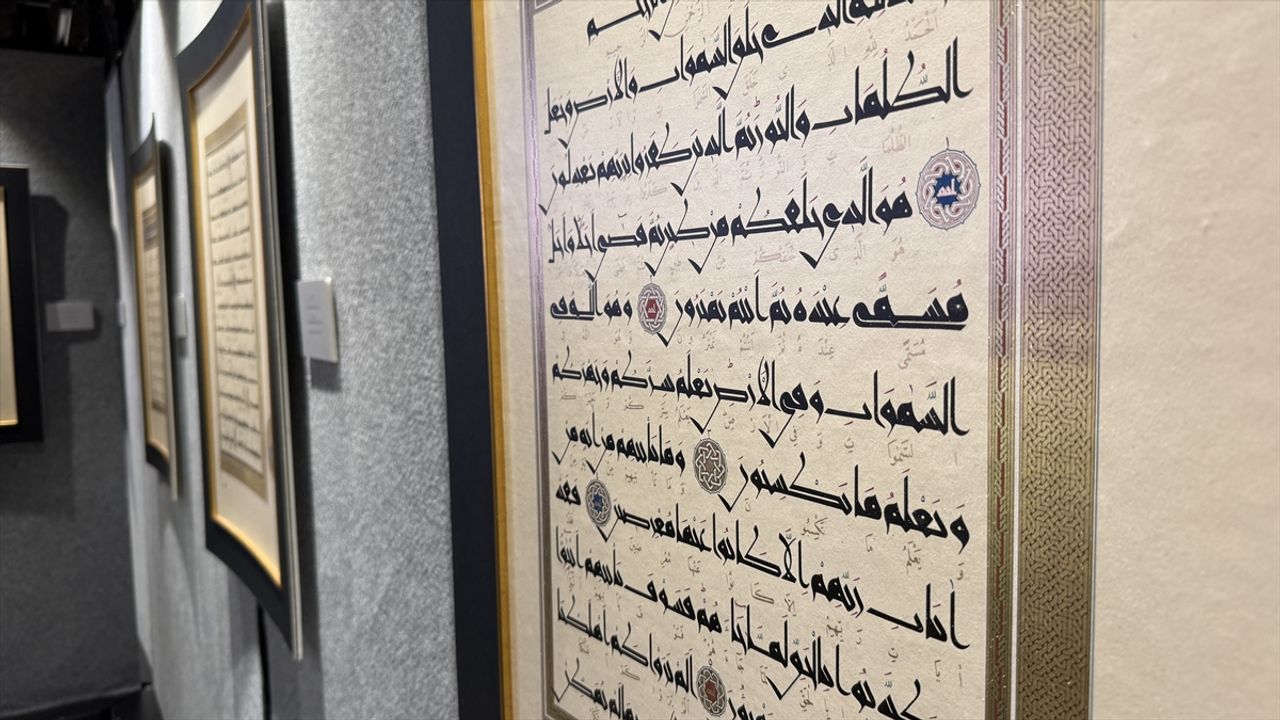 الحمد لله الذي خلق السموات والأرض وجعل
الظلمات والنور ثم الذين كفروا بربهم يعدلون
هو الذي خلقكم من طين ثم قضى أجلا وأجل
مسمى عنده ثم أنتم تمترون وهو الله في
السموات وفي الأرض يعلم سركم وجهركم
ويعلم ما تكسبون وما تأتيهم من آية من
آيات ربهم إلا كانوا عنها معرضين فقد
كذبوا بالحق لما جاءهم فسوف يأتيهم أنبؤا
ألم يروا كم أهلكنا